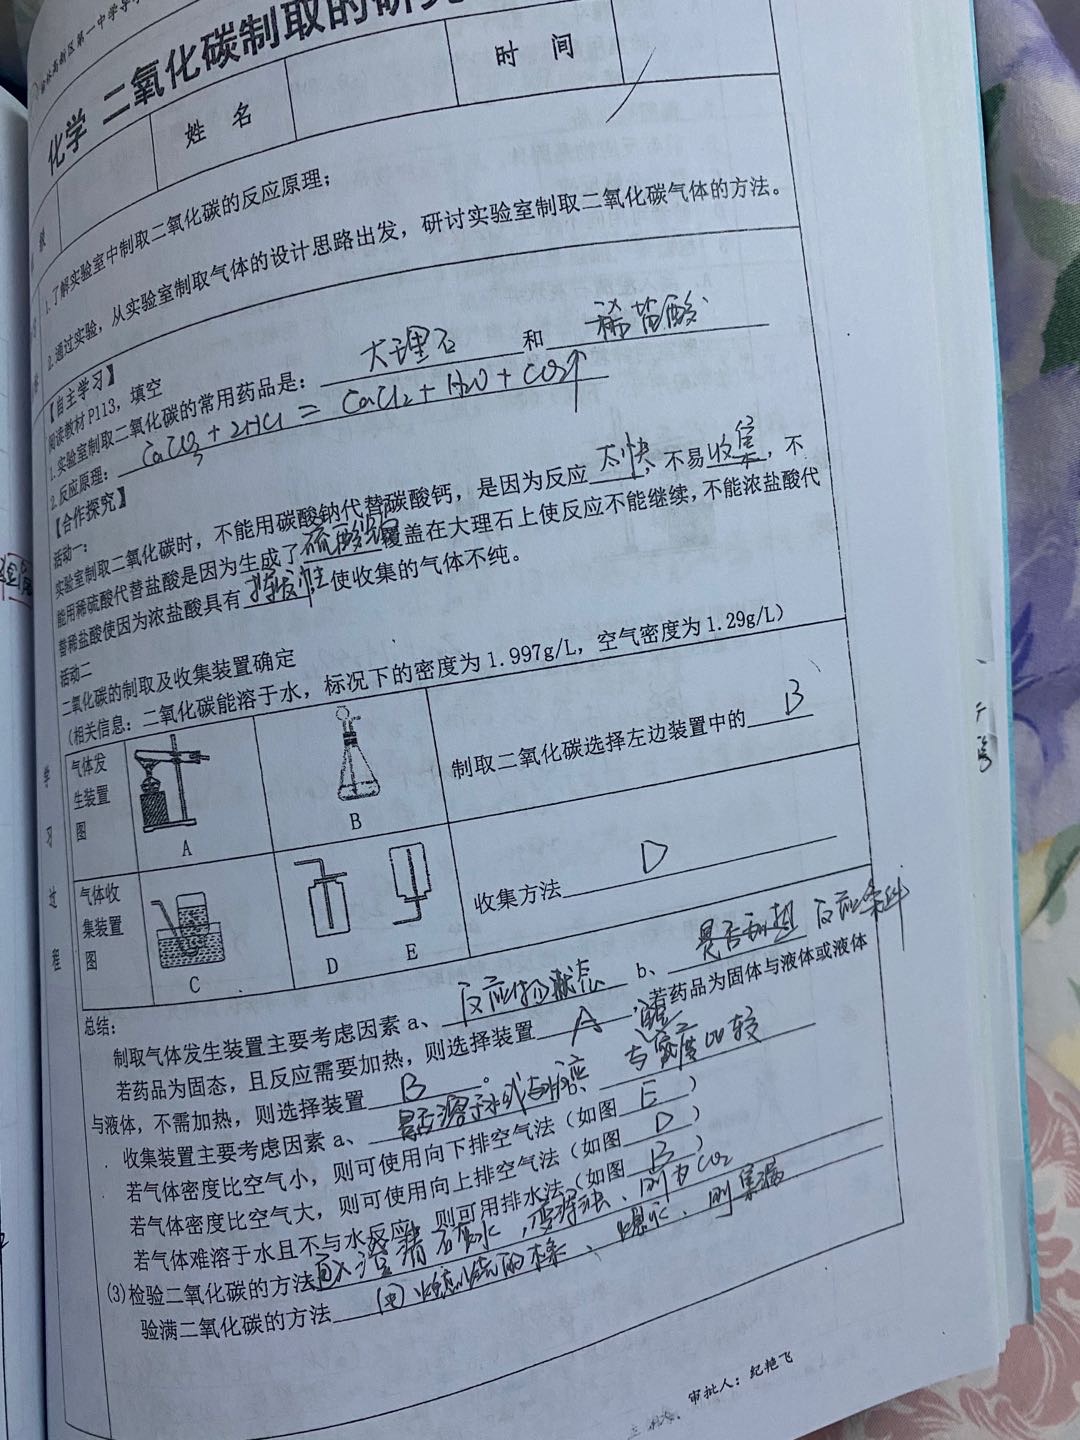 榆林高新区第一中学导学
化学 二氧化碳制取的研究
级 姓 名 时 间
1.了解实验室中制取二氧化碳的反应原理；
2.通过实验，从实验室制取气体的设计思路出发，研讨实验室制取二氧化碳气体的方法。
【自主学习】
阅读教材P113，填空
1.实验室制取二氧化碳的常用药品是：大理石和稀盐酸
2.反应原理：CaCO3+2HCl=CaCl2+H2O+CO2↑
【合作探究】
活动一：
实验室制取二氧化碳时，不能用碳酸钠代替碳酸钙，是因为反应太快、不易收集，不
能用稀硫酸代替盐酸是因为生成了硫酸钙覆盖在大理石上使反应不能继续，不能浓盐酸代
替稀盐酸使因为浓盐酸具有挥发性使收集的气体不纯。
活动二
二氧化碳的制取及收集装置确定
(相关信息：二氧化碳能溶于水，标况下的密度为1.997g/L，空气密度为1.29g/L)
气体发
生装置
图
A
B
制取二氧化碳选择左边装置中的B
气体收
集装置
图
C
D
E
收集方法D
学
习
过
程
总结：
制取气体发生装置主要考虑因素a、反应物状态 b、是否加热 反应条件
若药品为固态，且反应需要加热，则选择装置A；若药品为固体与液体或液体
与液体，不需加热，则选择装置B。
收集装置主要考虑因素a、是否溶于水 与密度比较
若气体密度比空气小，则可使用向下排空气法（如图E）
若气体密度比空气大，则可使用向上排空气法（如图D）
若气体难溶于水且不与水反应，则可用排水法（如图B）
(3)检验二氧化碳的方法 澄清石灰水，变浑浊、则为CO2
验满二氧化碳的方法 燃烧的木条、熄灭、则集满
审批人：纪艳飞